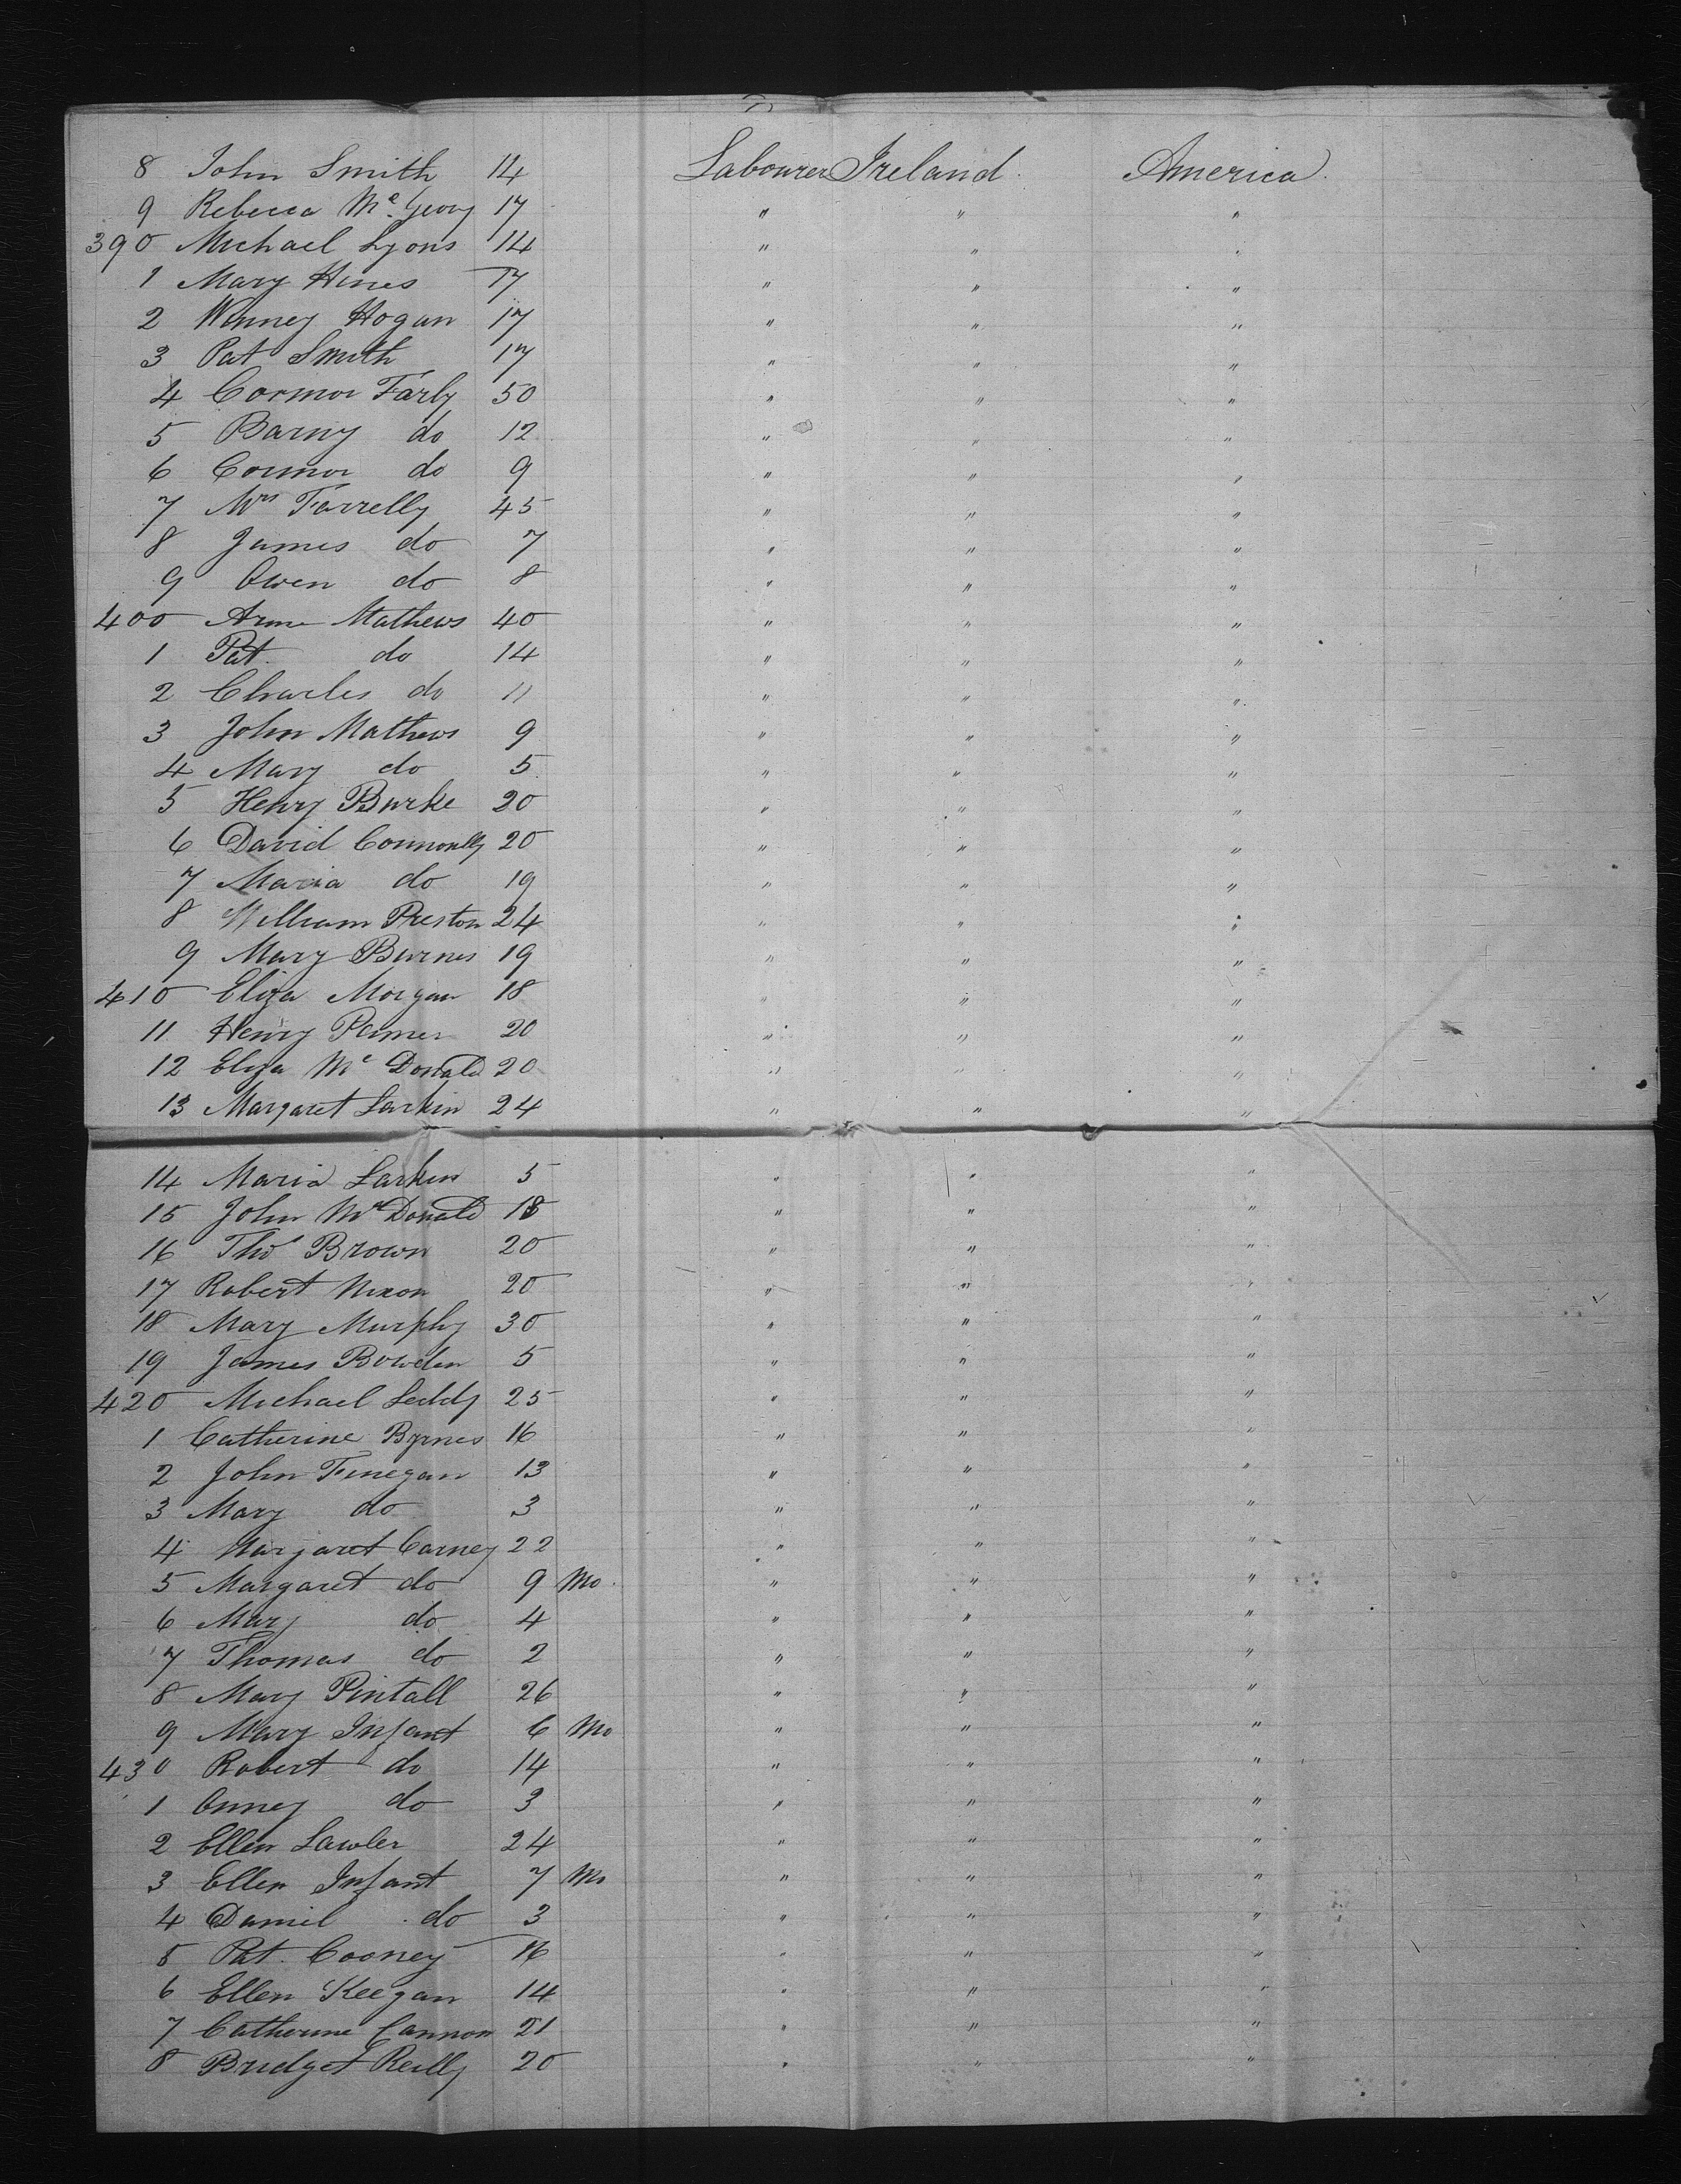 8 John Smith 14 Labourer Ireland America
9 Rebecca Mc 17 " " "
390 Michael Lyons 14 " " "
1 Mary Hines 17 " " "
2 Winney Hogan 17 " " "
3 Pat Smith 17 " " "
4 Cormor Farly 50 " " "
5 Barny do 12 " " "
6 Cormor do 9 " " "
7 Mrs Farrelly 45 " " "
8 James do 7 " " "
9 Owen do 8 " " "
400 Anne Mathews 40 " " "
1 Pat do 14 " " "
2 Charles do 11 " " "
3 John Mathews 9 " " "
4 Mary do 5 " " "
5 Henry Burke 20 " " "
6 David Connonlly 20 " " "
7 Maria do 19 " " "
8 William Preston 24 " " "
9 Mary Burnes 19 " " "
410 Eliza Morgan 18 " " "
11 Henry 20 " " "
12 Eliza Mc Donald 20 " " "
13 Margaret Larkin 24 " " "
14 Maria Larkin 5 " " "
15 John Mc Donald 18 " " "
16 Thos Brown 20 " " "
17 Robert Nixon 20 " " "
18 Mary Murphy 30 " " "
19 James Bowden 5 " " "
420 Michael Leddy 25 " " "
1 Catherine Byrnes 16 " " "
2 John Finegan 13 " " "
3 Mary do 3 " " "
4 Margaret Carney 22 " " "
5 Margaret do 9 Mo " " "
6 Mary do 4 " " "
7 Thomas do 2 " " "
8 Mary Pintall 26 " " "
9 Mary Infant 6 Mo " " "
430 Robert do 14 " " "
1 Anney do 3 " " "
2 Ellen Lawler 24 " " "
3 Ellen Infant 7 Mo " " "
4 Daniel do 3 " " "
5 Pat Cooney 16 " " "
6 Ellen Keegan 14 " " "
7 Catherine Cannon 21 " " "
8 Bridget Reilly 20 " " "